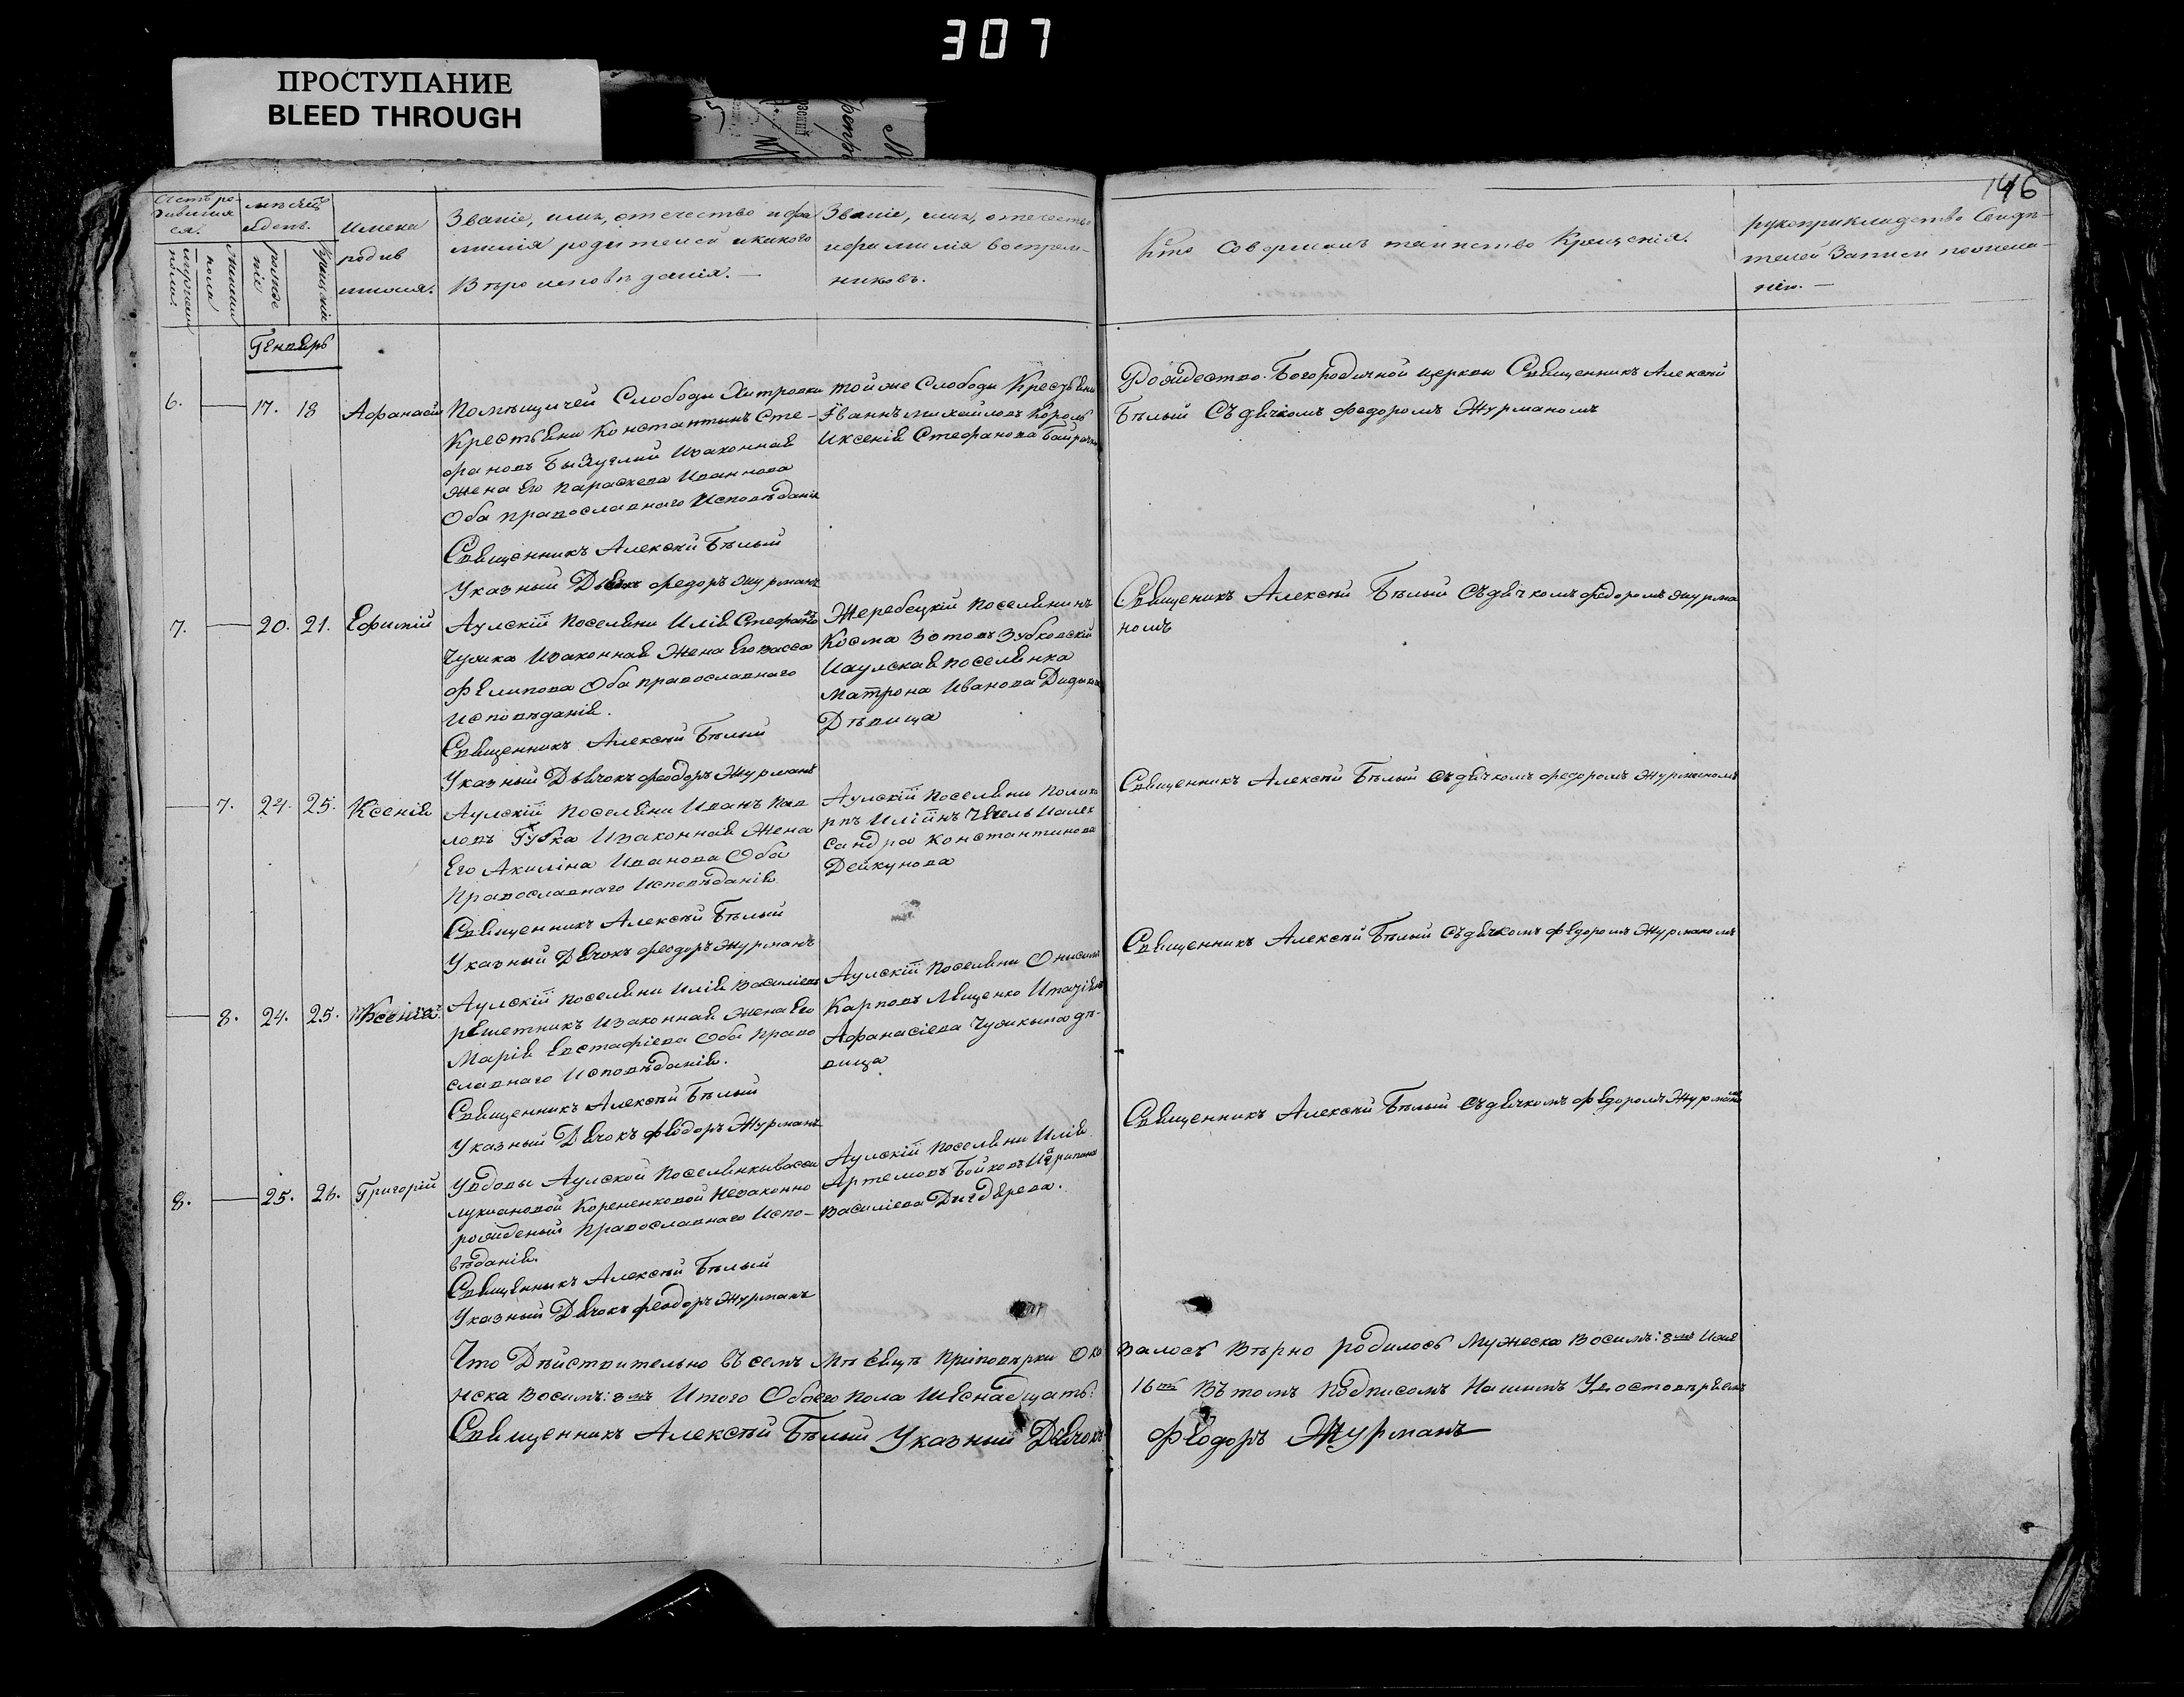 307
ПРОСТУПАНИЕ
BLEED THROUGH
146
мѣсяцъ
и день.
Имена
родив
шихся.
Званіе, имя, отечество и фа
милія родителей и какого
Вѣроисповѣданія. —
Званіе, имя, отечество
и фамилія воспрем-
никовъ.
Кто совершалъ таинство Крещенія.
рукоприкладство Свидѣ-
телей Записи по
Генварь
6. 17. 18 Афанасий
Помѣщичей Слободы Хитровки
Крестьяни Константынъ Сте-
фановъ Изаконная
жена Его Параскева Иваннова
Оба православнаго Исповѣданія
Священникъ Алексѣй Бѣлый
Указный Дьячокъ федоръ Журманъ
той же Слободы Крестьяни
Іваннъ михайловъ Король
Иксенія Стефанова
Рождество-Богородичной церкви Священникъ Алексѣй
Бѣлый Съ дячкомъ федоромъ Журманомъ
7. 20. 21. Ефимій
Аулскій поселяни Илія Стефановъ
Чумка Изаконная Жена Его васса
филипова Оба православнаго
Исповѣданія.
Священникъ Алексѣй Бѣлый
Указный Дьячокъ феодоръ Журманъ
Жеребецкій поселянинъ
Косма Зотовъ Зубковскій
Иаулская поселянка
Матрона Иванова
Дѣвица
Священикъ Алексѣй Бѣлый Съ дячкомъ федоромъ журма
номъ
7. 24. 25. Ксенія
Аулскій поселяни Иванъ Пав
ловъ Губка Изаконная Жена
Его Акиліна Иванова Оба
Православнаго Исповѣданія
Священникъ Алексѣй Бѣлый
Указный Дячокъ феодоръ Журманъ
Аулскій поселяни Полика
рпъ Иліинъ Иалек
сандра Константинова
Дейкунова
Священникъ Алексѣй Бѣлый Съ дячкомъ федоромъ Журманомъ
8. 24. 25. Ксенія
Аулскій поселяни Илія Василіевъ
решетникъ Изаконная жена Его
Марія Евстафіева Оба Право
славнаго Исповѣданія.
Священникъ Алексѣй Бѣлый
Указный Дячокъ феодоръ Журманъ
Аулскій поселяни Онисимъ
Карповъ Лященко
Афанасіева Чумкына дѣ-
вица
Священникъ Алексѣй Бѣлый Съ дячкомъ федоромъ Журманомъ
8. 25. 26. Григорій
Удовы Аулской Поселянкы вассы
лукиановой Корененковой Незаконно
рожденый Православнаго Испо-
вѣданія.
Священныкъ Алексѣй Бѣлый
Указный Дячокъ феодоръ Журманъ
Аулскій поселяни Илія
Артемовъ Бойковъ
Василіева
Священникъ Алексѣй Бѣлый Съ дячкомъ федоромъ Журманомъ
Что Дѣйствительно въ семъ Мѣсяцѣ приповѣрки Ока
залось Вѣрно родилось Мужеска Восимъ: 8мъ Иже
нска Восимъ: 8мъ Итого Обоего пола Шеснадцать:
16ть Въ томъ подписомъ Нашимъ Удостовѣряемъ
Священникъ Алексѣй Бѣлый Указный Дячокъ
феодоръ Журманъ